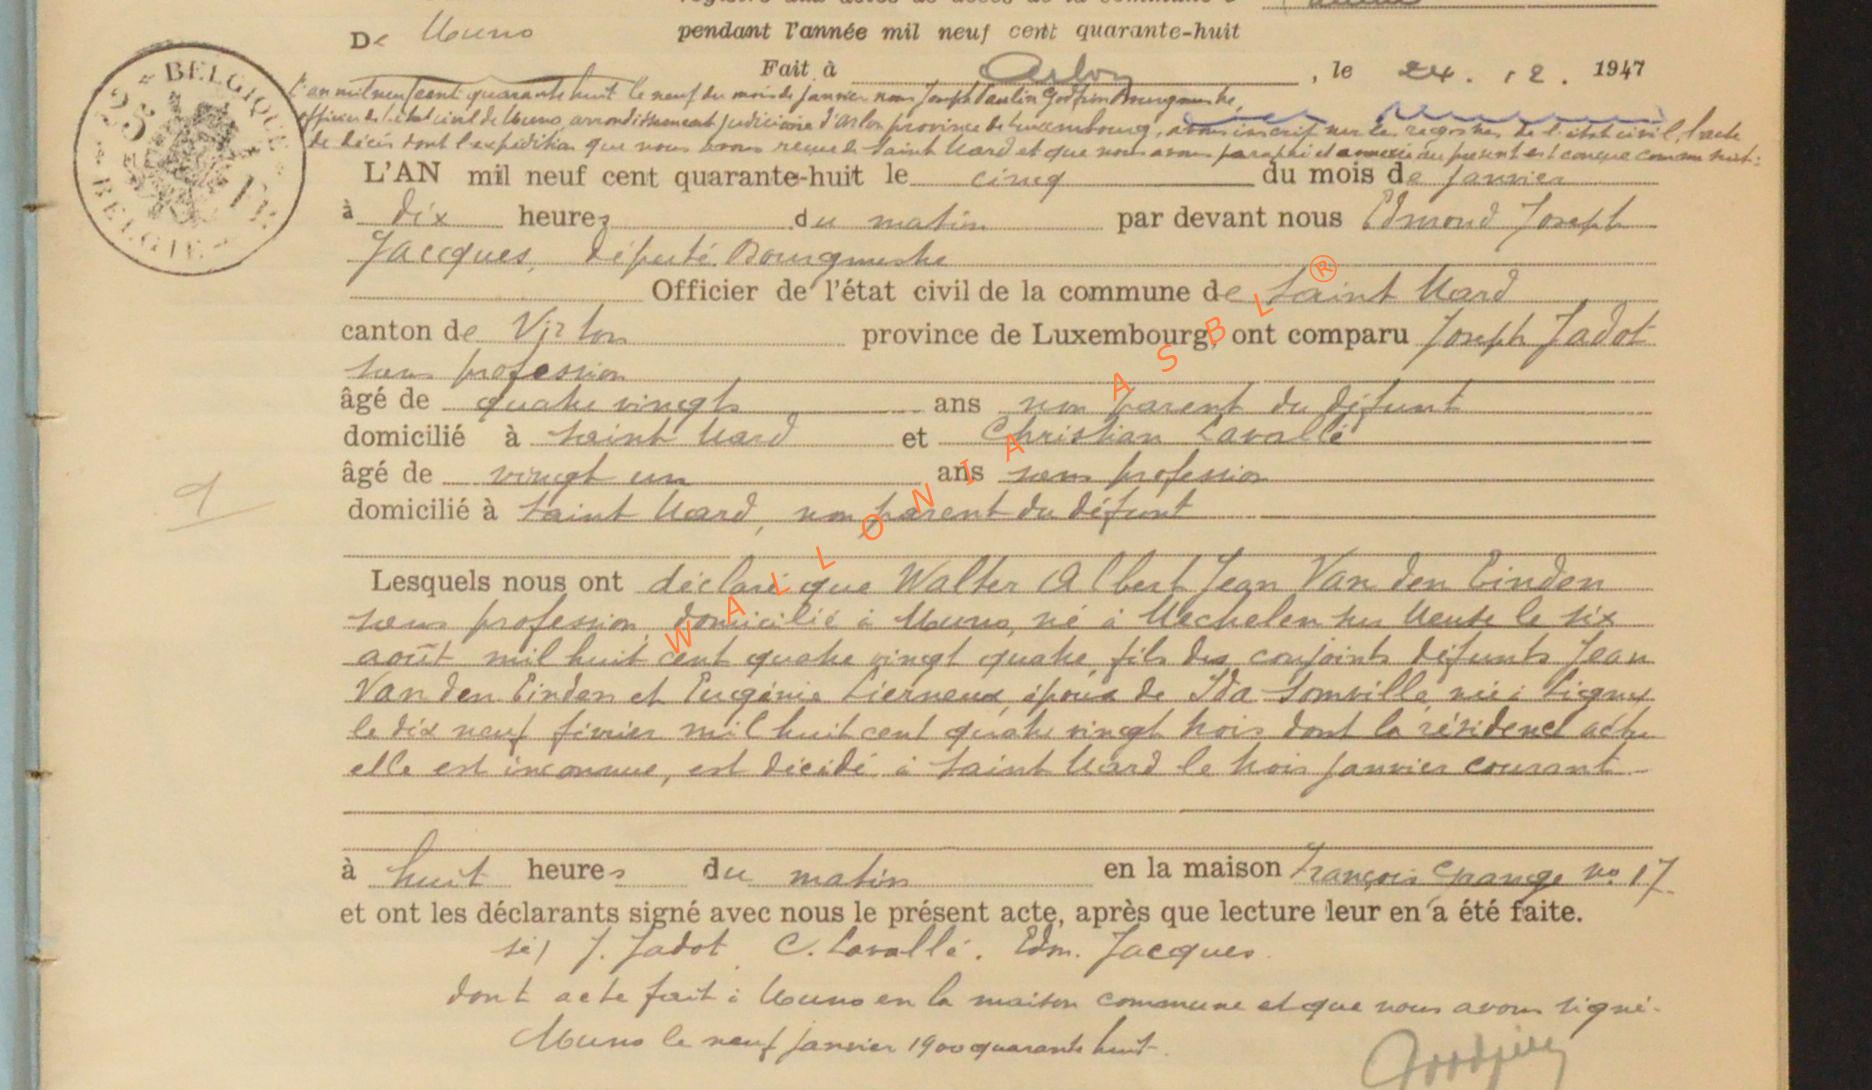 registre aux actes de décès de la commune
De Muno
pendant l'année mil neuf cent quarante-huit
Fait à Arlon, le 24. 12. 1947
BELGIQUE
BELGIE
5 Fr
L'an mil neuf cent quarante huit le neuf du mois de janvier nous Joseph Paulin Godfrin Bourgmestre,
officier de l'état civil de Muno, arrondissement judiciaire d'Arlon province de Luxembourg, avons inscrit sur les registres de l'état civil, l'acte
de décès dont l'expédition que nous avons reçue de Saint Mard et que nous avons paraphé et annexée au présent est conçue comme suit:
L'AN mil neuf cent quarante-huit le cinq du mois de janvier
à dix heures du matin par devant nous Edmond Joseph
Jacques, député Bourgmestre
Officier de l'état civil de la commune de Saint Mard
canton de Virton province de Luxembourg, ont comparu Joseph Jadot
sans profession
âgé de quatre vingts ans non parent du défunt
domicilié à Saint Mard et Christian Lavallé
âgé de vingt un ans sans profession
domicilié à Saint Mard, non parent du défunt
1
Lesquels nous ont déclaré que Walter Albert Jean Van den Einden
sans profession, domicilié à Muno, né à Mechelen sur Meuse le six
août mil huit cent quatre vingt quatre fils des conjoints défunts Jean
Van den Einden et Eugénie Lierneux, époux de Ida Somville, née à Ligny
le dix neuf février mil huit cent quatre vingt trois dont la résidence actu
elle est inconnue, est décédé à Saint Mard le trois janvier courant
à huit heures du matin en la maison François Grange no 17
et ont les déclarants signé avec nous le présent acte, après que lecture leur en a été faite.
sé) J. Jadot. C. Lavallé. Edm. Jacques.
dont acte fait à Muno en la maison commune et que nous avons signé.
Muno le neuf janvier 1900 quarante huit.
Godfrin
WALLONIA ASBL ®